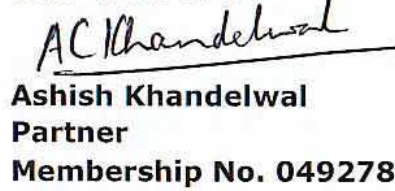 ACKhandelwal
Ashish Khandelwal
Partner
Membership No. 049278